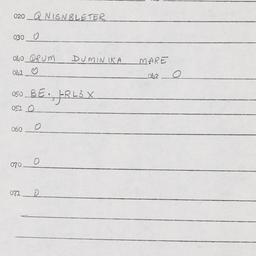 020 Q NIGNBLETER
030 O
040 QRUM DUMINIKA MARE
041 O 042 O
050 BE.
051 O
060 O
070 O
072 O